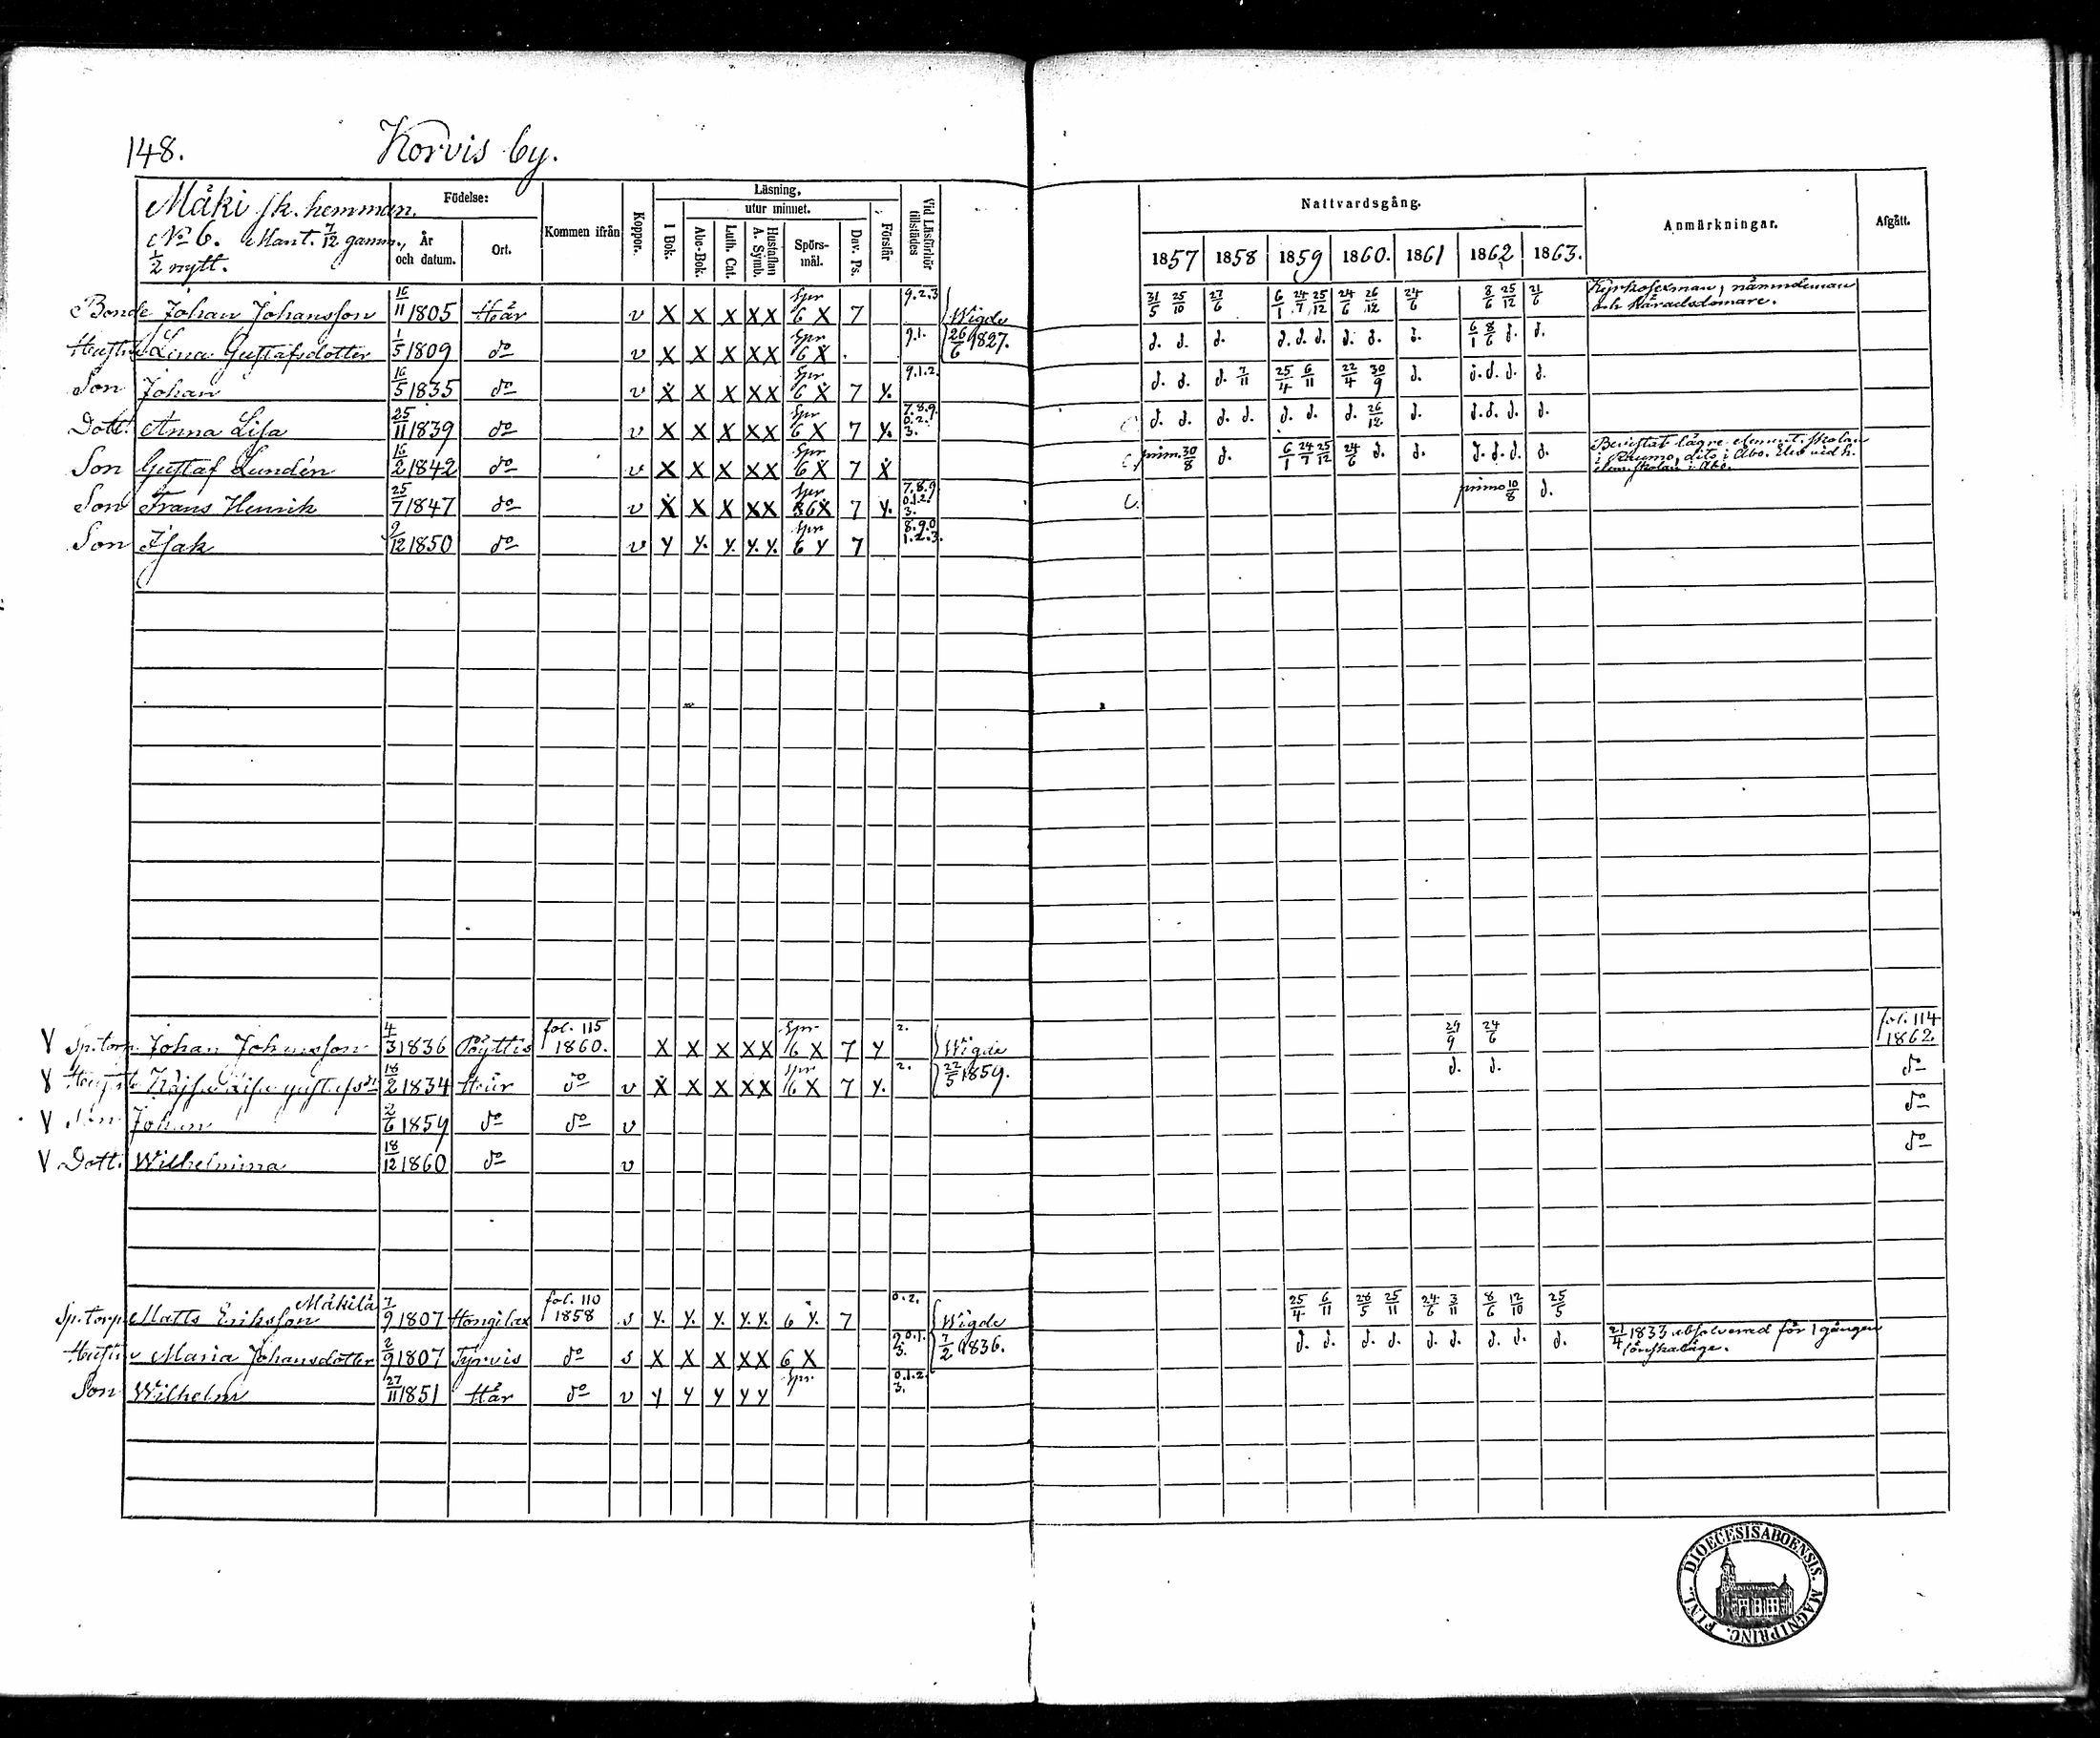 148. Korvis by.
Mäki sk. hemman.
No 6. Mant. 7/12 gamm.,
1/2 nytt.
Födelse:
År och datum.
Ort.
Kommen ifrån
Koppor.
Läsning,
utur minnet.
I Bok.
Abc-Bok.
Luth. Cat.
Hustaflan A. Symb.
Spörsmål.
Dav. Ps.
Förstår
Vid Läsförhör tillstädes
Nattvardsgång.
1857 1858 1859 1860. 1861 1862 1863.
Anmärkningar.
Afgått.
Bonde Johan Johansson 16/11 1805 Här v X X X XX Spr 6 X 7 9.2.3 Wigde 31/5 25/10 27/6 6/1 24/7 25/12 24/6 26/12 24/6 8/6 25/12 21/6 Kyrkosexman, nämndeman och häradsdomare.
Hustru Lina Gustafsdotter 1/5 1809 do v X X X XX Spr 6 X 9.1. 26/6 1827. d. d. d. d. d. d. d. d. d. 6/1 8/6 d. d.
Son Johan 16/5 1835 do v X X X XX Spr 6 X 7 Y. 9.1.2. d. d. d. 7/11 25/4 6/11 22/4 30/9 d. d. d. d. d.
Dott. Anna Lisa 25/11 1839 do v X X X XX Spr 6 X 7 Y. 7.8.9. 0.2. 3. d. d. d. d. d. d. d. 26/12 d. d. d. d. d.
Son Gustaf Lundén 16/2 1842 do v X X X XX Spr 6 X 7 X prim. 30/8 d. 6/1 24/7 25/12 24/6 d. d. d. d. d. d. Bevistat lägre element. skolan i Raumo, dito i Åbo. Elev vid h. elem. skolan i Åbo.
Son Frans Henrik 25/7 1847 do v X X X XX Spr 6X 7 Y. 7.8.9 0.1.2. 3. C. primo 10/8 d.
Son Isak 9/12 1850 do v Y Y. Y. Y. Y. Spr 6 Y 7 8.9.0 1.2.3.
V Sp.torp. Johan Johansson 4/3 1836 Pöyttis fol. 115 1860. X X X XX Spr 6 X 7 Y 2. Wigde 29/9 24/6 fol. 114 1862
V Hustr. Kajsa Lisa Gustafsdr 18/2 1834 Här do v X X X XX Spr 6 X 7 Y. 2. 22/5 1859. d. d. do
V Son Johan 2/6 1859 do do v do
V Dott. Wilhelmina 18/12 1860 do v do
Sp.torp. Matts Eriksson Mäkilä 7/9 1807 Hongilax fol. 110 1858 s Y. Y. Y. Y. Y. 6 Y. 7 0.2. Wigde 25/4 6/11 28/5 25/11 24/6 3/11 8/6 12/10 25/5
Hustru Maria Johansdotter 2/9 1807 Tyrvis do s X X X XX 6 X 9.0.1. 3. 7/2 1836. d. d. d. d. d. d. d. d. d. 21/4 1833 absolverad för 1 gången lönskaläge.
Son Wilhelm 27/11 1851 Här do v Y Y Y Y Y Spr 0.1.2. 3.
DIOECESIS ABOENSIS. MAGNI PRINC. FINL.